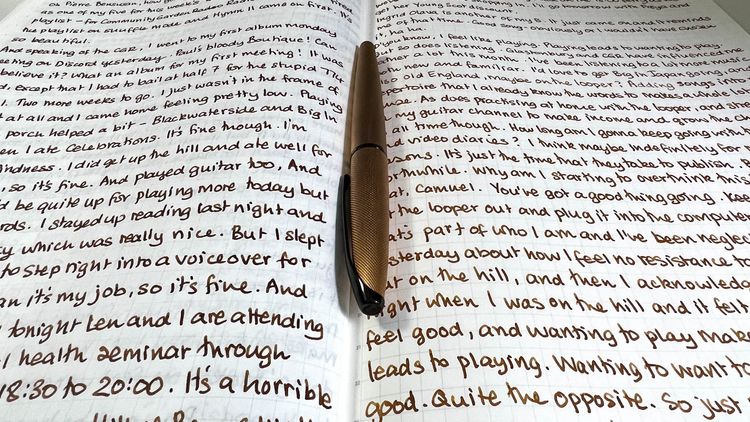 ok Pierre Bensusan, how
as one of my five for this week's
playlist - for Community Garden Radio
the playlist on shuffle mode and Hymn 11 came on first. It's
so beautiful.
And speaking of the CGR, I went to my first album monday
on Discord yesterday. Paul's bloody Boutique! Can
believe it? What an album for my first meeting! It was
, except that I had to bail at half 7 for the stupid TT4
1. Two more weeks to go. I just wasn't in the frame of
at all and I came home feeling pretty low. Playing
porch helped a bit - Blackwaterside and Big In
en I ate Celebrations. It's fine though. I'm
indness. I did get up the hill and ate well for
, so it's fine. And played guitar too. And
d be quite up for playing more today but
rds. I stayed up reading last night and
y which was really nice. But I slept
to step right into a voiceover for
an it's my job, so it's fine. And
tonight Len and I are attending
l health seminar through
18:30 to 20:00. It's a horrible
Young Scot
of that time.
it, ha ha.
now, I feel like playing. Playing leads to wanting to play.
new and familiar. I'd love to go Big In Japan going, and
is Old England. Maybe on the looper? Adding songs to
pertoire that I already know the words to makes a whole lot
nse. As does practising at home with the looper, and starting
my guitar channel to make income and grow the ch
all time though. How long am I gonna keep going with the
d video diaries? I think maybe indefinitely for
sons. It's just the time that they take to publish, t
rthwhile. Why am I starting to overthink this
at, Camuel. You've got a good thing going. Keep
t the looper out and plug it into the computer
at's part of who I am and I've been neglec
sterday about how I feel no resistance to
ut on the hill, and then I acknowledg
night when I was on the hill and it felt
feel good, and wanting to play make
leads to playing. Wanting to want to
good. Quite the opposite. So just